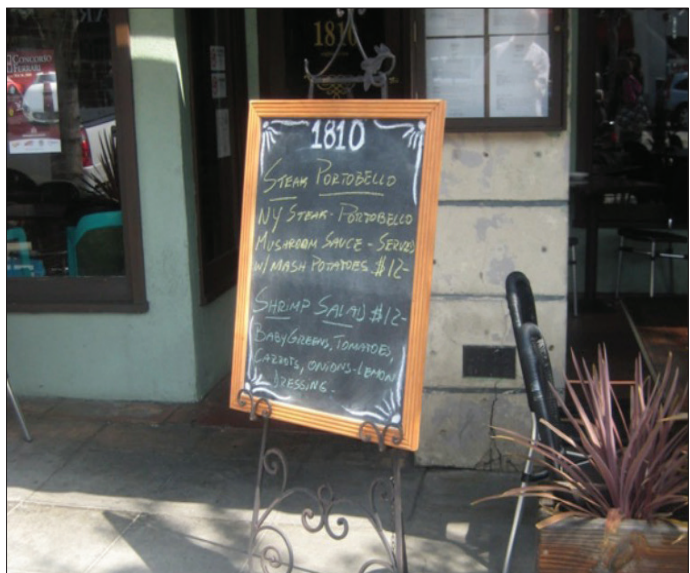 1810
CONCORSO
FERRARI
1810
STEAK PORTOBELLO
NY STEAK - PORTOBELLO
MUSHROOM SAUCE - SERVED
W/ MASH POTATOES. $12-
SHRIMP SALAD $12-
BABY GREENS, TOMATOES,
CARROTS, ONIONS - LEMON
DRESSING -